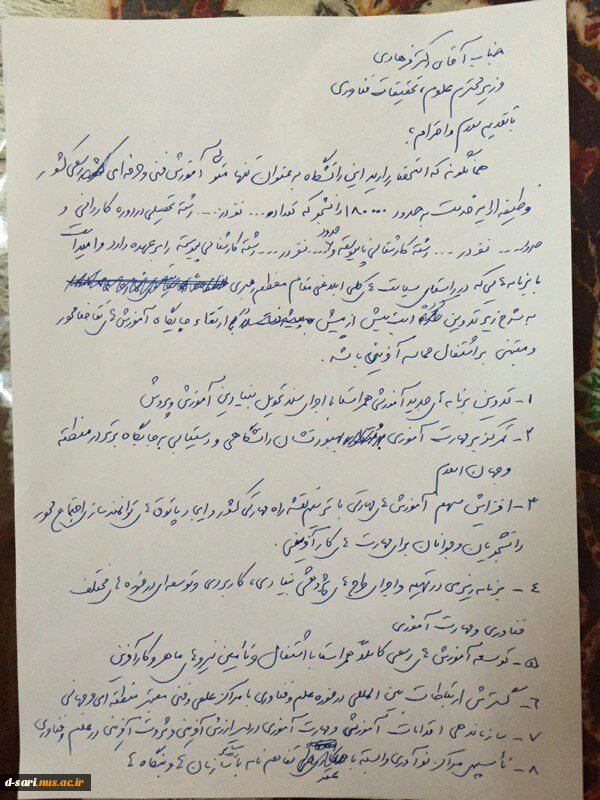 جناب آقای دکتر فرهادی
وزیر محترم علوم، تحقیقات فناوری
با تقدیم سلام و احترام؛
همانگونه که استحضار دارید این دانشگاه به عنوان تنها متولی آموزش فنی و حرفه‌ای رسمی کشور
وظیفه ارایه خدمت به حدود ۱۸۰۰۰۰ دانشجو که تعداد ... نفر در ... رشته تحصیلی در دوره کاردانی و
حدود ... نفر در ... رشته کارشناسی ناپیوسته و حدود ... نفر در ... رشته کارشناسی پیوسته را بر عهده دارد و امید است
با برنامه هایی که در راستای سیاست های کلی ابلاغی مقام معظم رهبری
به شرح زیر تدوین است بیش از پیش ارتقاء جایگاه آموزش های تقاضا محور
و مبتنی بر اشتغال حماسه آفرین باشد.
۱- تدوین برنامه های جدید آموزشی همراستا با اجرای سند تحول بنیادین آموزش و پرورش
۲- تمرکز بر مهارت آموزی دانشگاهی و دستیابی به جایگاه برتر در منطقه
و جهان اسلام
۳- افزایش سهم آموزش های مهارتی با ترسیم نقشه راه مهارتی کشور و ایجاد پاتوق های توانمندساز و اجتماع محور
دانشجویان و جوانان برای مهارت های کارآفرینی.
۴- برنامه ریزی در تهیه و اجرای طرح های پژوهشی بنیادی، کاربردی و توسعه ای در حوزه های مختلف
فناوری و مهارت آموزی
۵- توسعه آموزش های رسمی کاملاً همراستا با اشتغال و تأمین نیروهای ماهر و کارآفرین
۶- گسترش ارتباطات بین المللی در حوزه علم و فناوری با مراکز علمی و فنی معتبر منطقه ای و جهانی
۷- سازماندهی اقدامات آموزشی و مهارت آموزی در مسیر ارزش آفرینی و ثروت آفرینی در علم و فناوری
۸- تأسیس مراکز نوآوری وابسته با عقد تفاهم نامه با سازمان ها و بنگاه ها
d-sari.nus.ac.ir